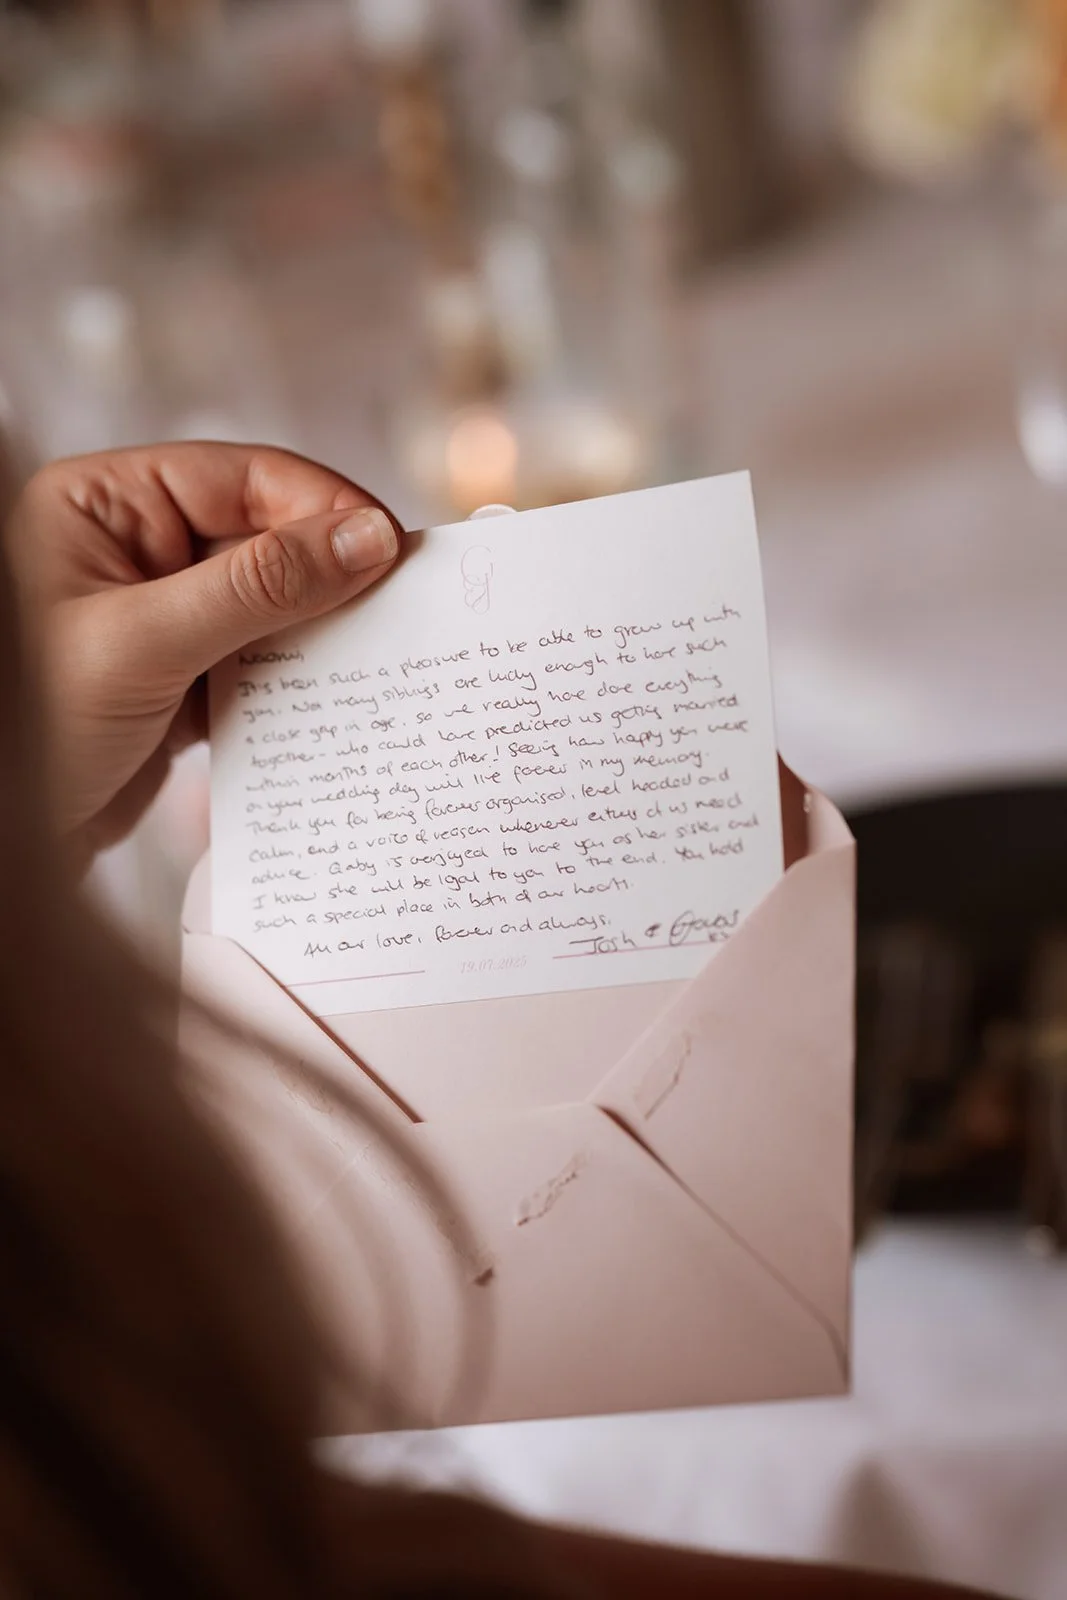 Naomi,
It's been such a pleasure to be able to grow up with
you. Not many siblings are lucky enough to have such
a close gap in age, so we really have done everything
together - who could have predicted us getting married
within months of each other! Seeing how happy you were
on your wedding day will live forever in my memory.
Thank you for being forever organised, level headed and
calm, and a voice of reason whenever either of us need
advice. Gaby is overjoyed to have you as her sister and
I know she will be loyal to you to the end. You hold
such a special place in both of our hearts.
All our love, forever and always,
Josh &
19.07.2025